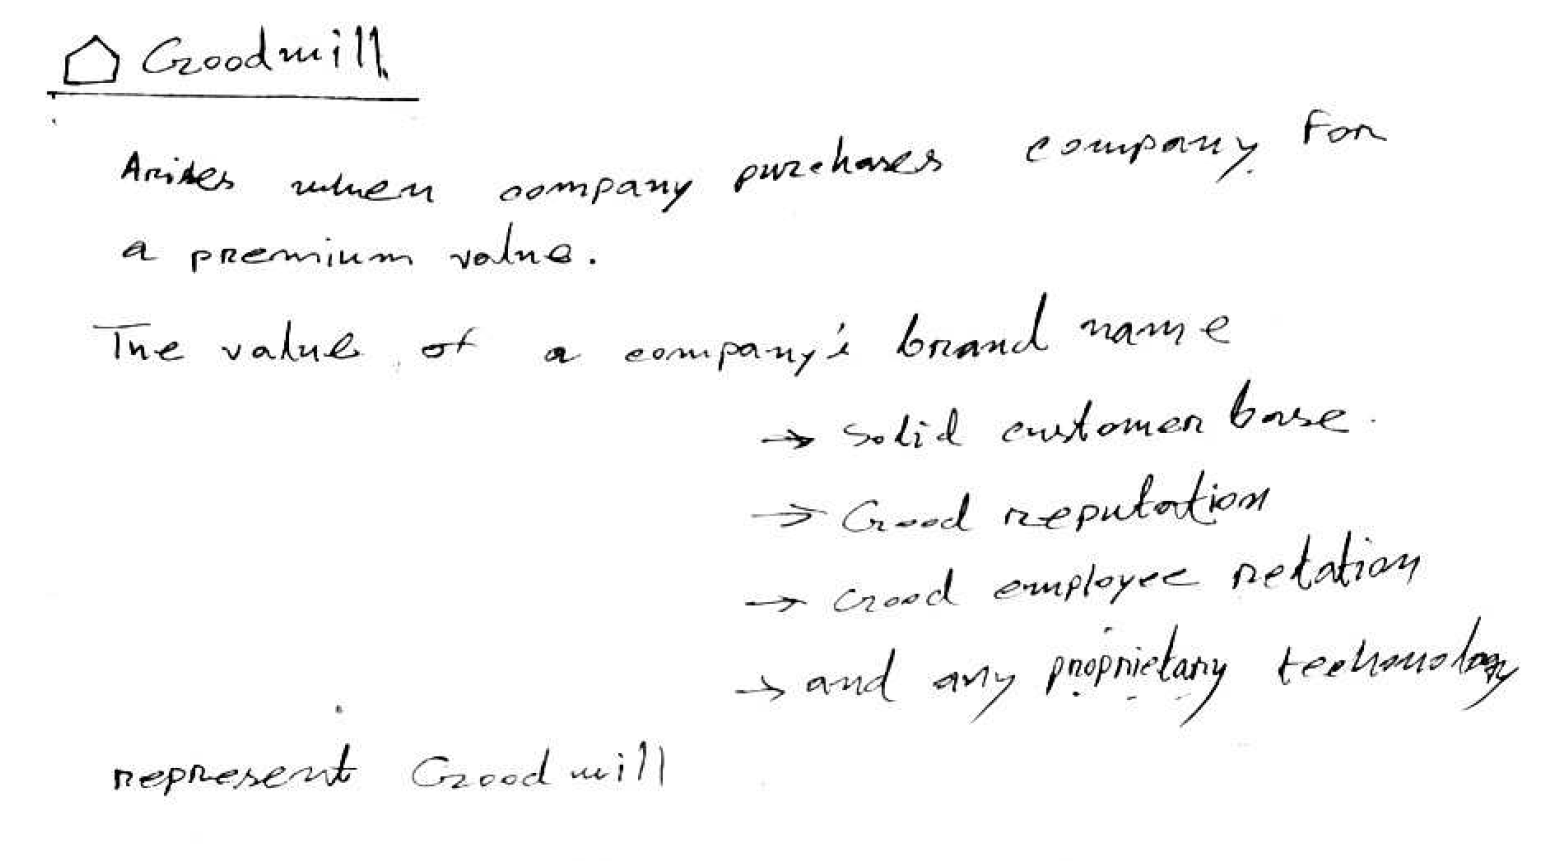 Goodwill
Arises when company purchases company for
a premium value.
The value of a company's brand name
→ Solid customer base.
→ Good reputation
→ Good employee relation
→ and any proprietary techonology
represent Goodwill